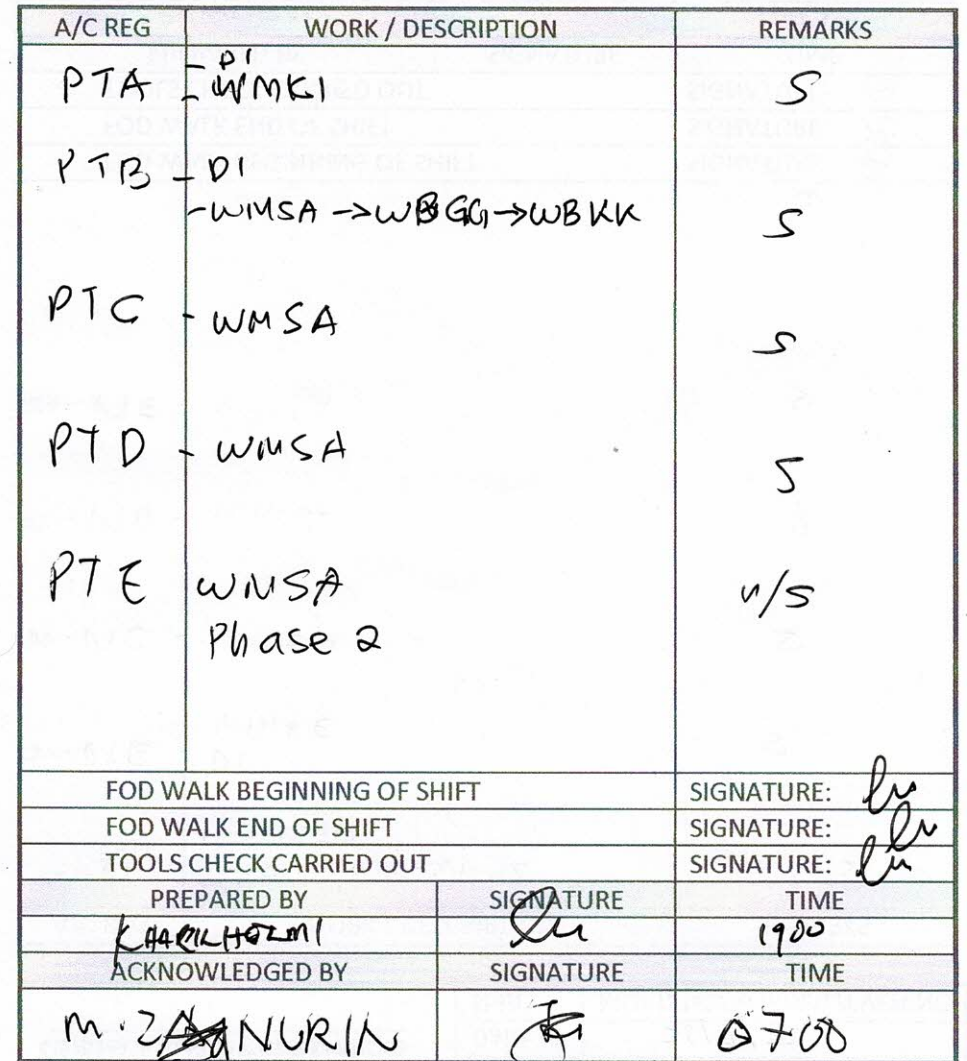 A/C REG WORK / DESCRIPTION REMARKS
- DI
PTA - WMKI S
PTB - DI
- WMSA -> WBGG -> WBKK S
PTC - WMSA S
PTD - WMSA S
PTE WMSA U/S
Phase 2
FOD WALK BEGINNING OF SHIFT SIGNATURE:
FOD WALK END OF SHIFT SIGNATURE:
TOOLS CHECK CARRIED OUT SIGNATURE:
PREPARED BY SIGNATURE TIME
1900
ACKNOWLEDGED BY SIGNATURE TIME
NURIN 0700